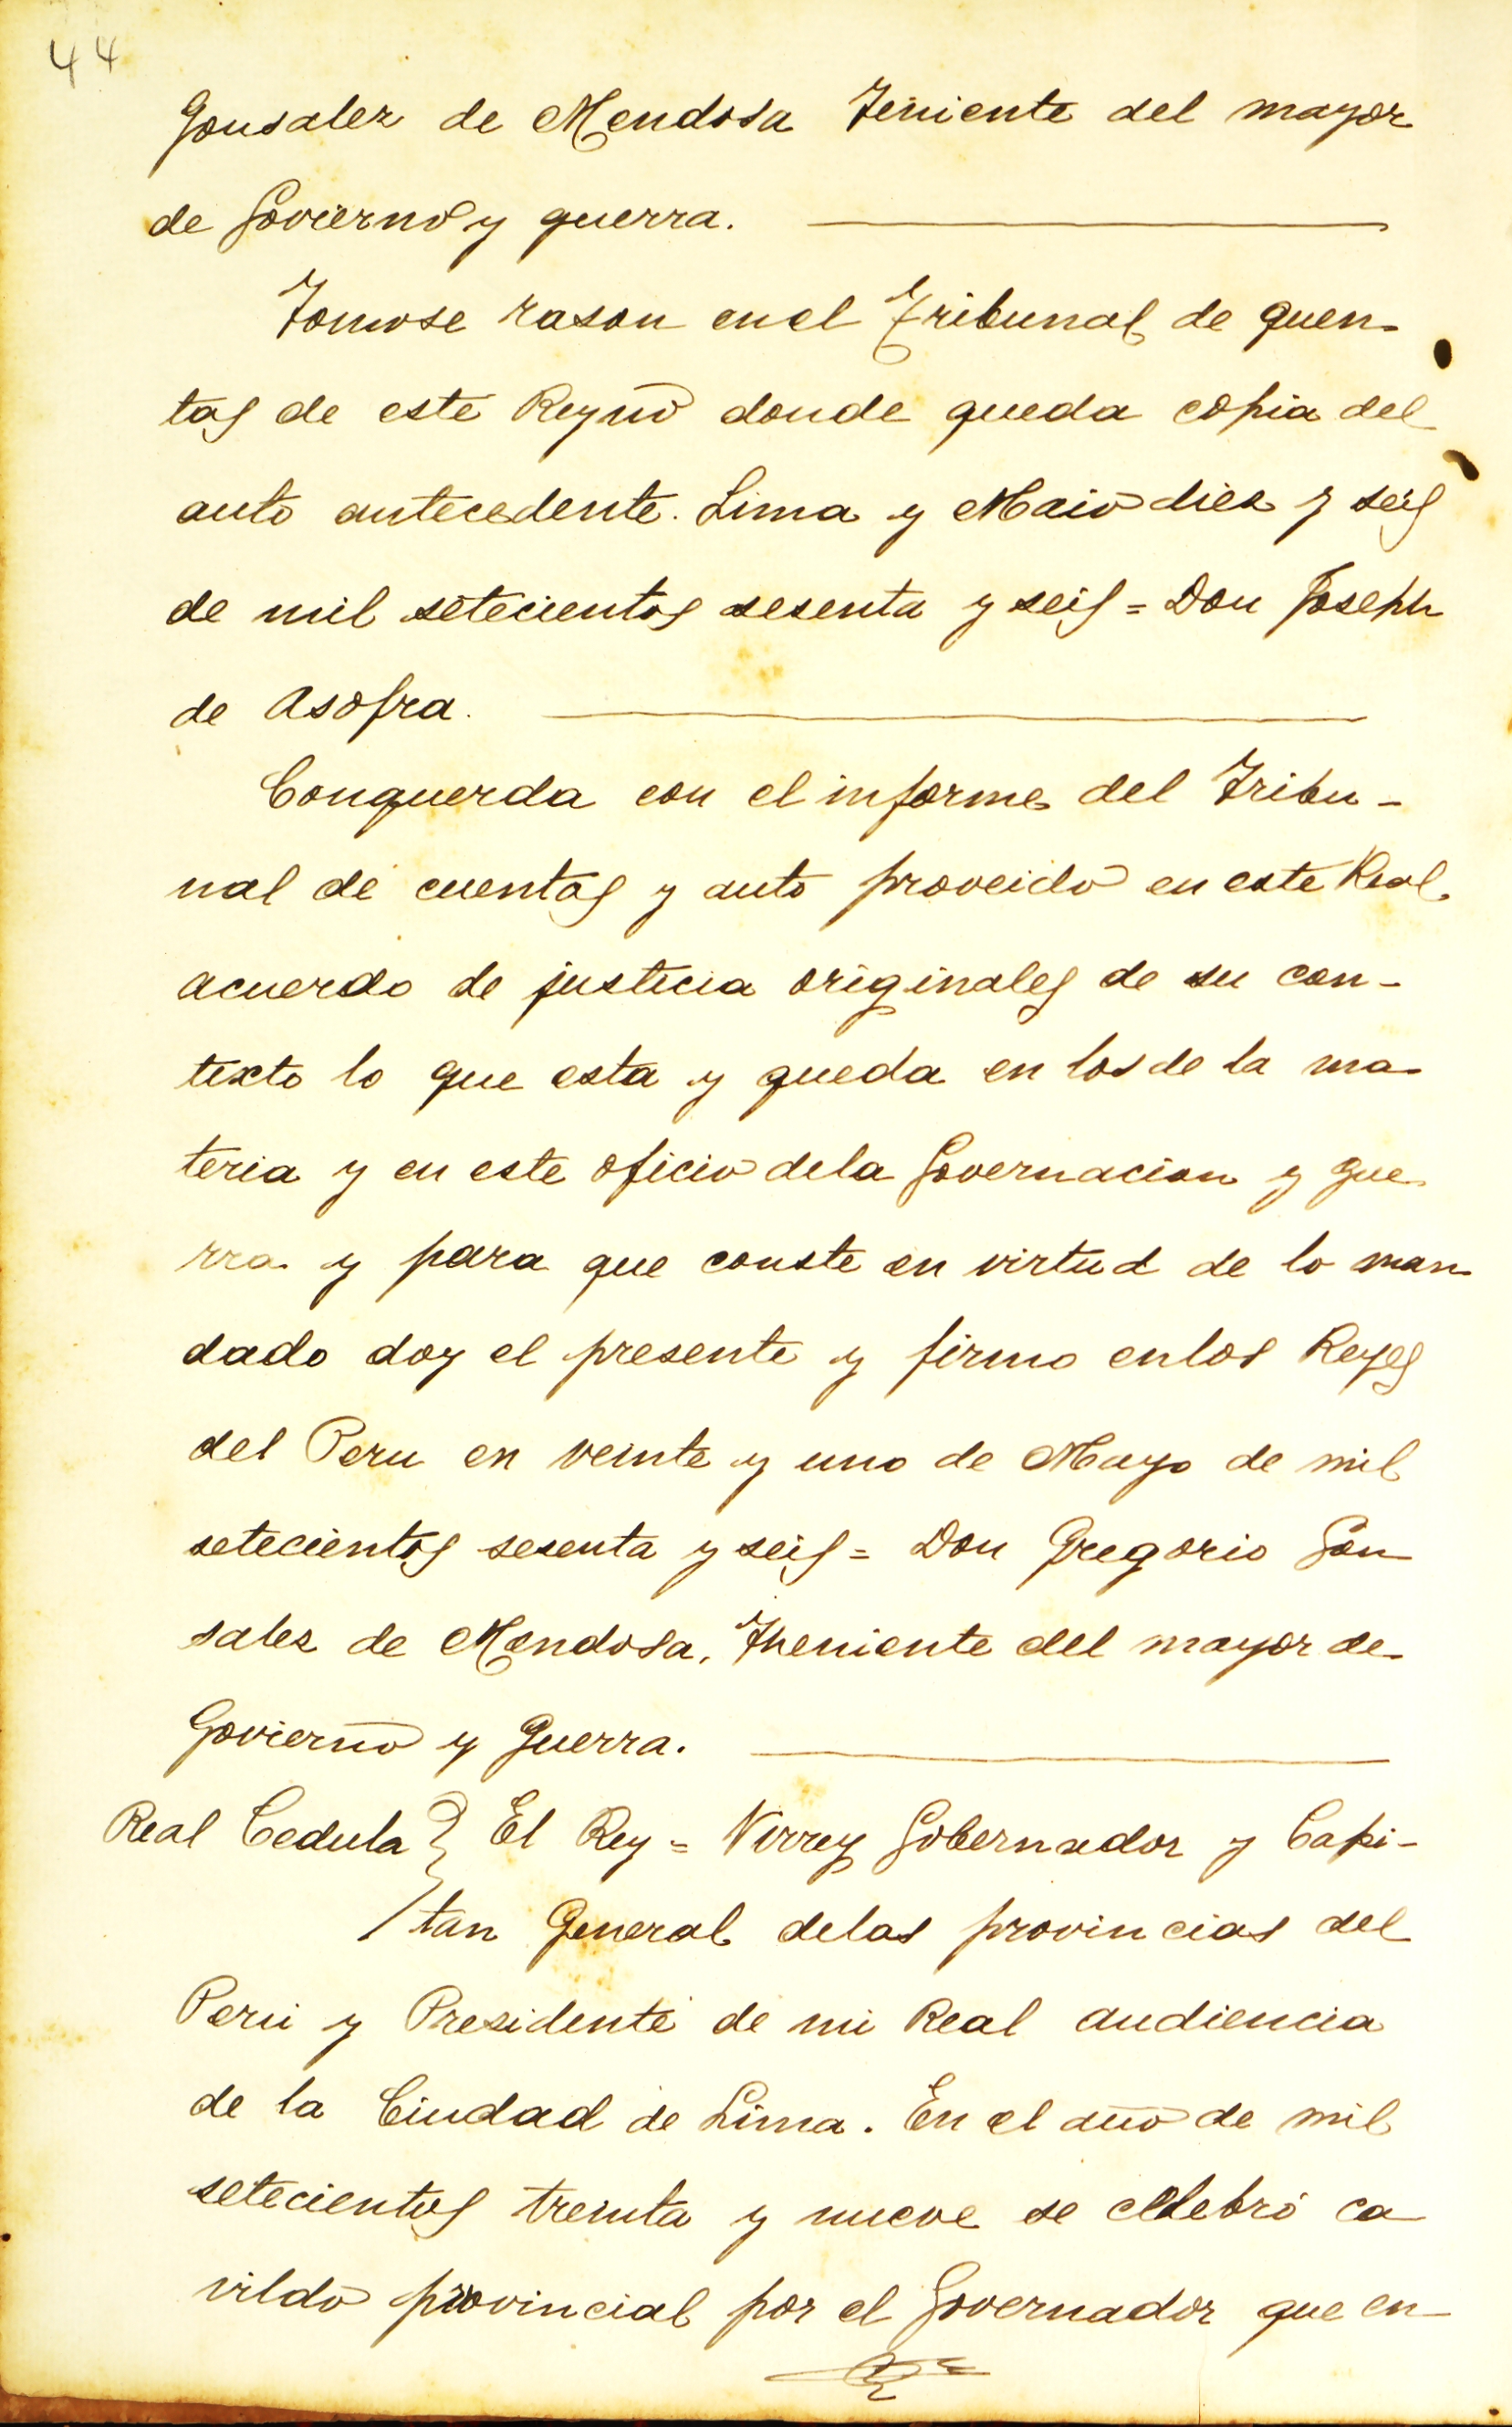 44
Gonsalez de Mendosa Teniente del mayor
de Govierno y guerra.
Tomose rason en el Tribunal de quen-
tas de este Reyno donde queda copia del
auto antecedente. Lima y Maio diez y seis
de mil setecientos sesenta y seis = Don Joseph
de Asofra.
Conquerda con el informe del Tribu-
nal de cuentas y auto proveido en este Real
acuerdo de justicia originales de su con-
texto lo que esta y queda en los de la ma-
teria y en este oficio dela Governacion y gue-
rra y para que conste en virtud de lo man-
dado doy el presente y firmo enlos Reyes
del Peru en veinte y uno de Mayo de mil
setecientos sesenta y seis = Don Gregorio Gon-
salez de Mendosa. Theniente del mayor de
Govierno y Guerra.
Real Cedula } El Rey = Virrey Gobernador y Capi-
tan General delas provincias del
Perú y Presidente de mi Real audiencia
de la Ciudad de Lima. En el año de mil
setecientos treinta y nueve se celebró ca-
vildo provincial por el Governador que en-